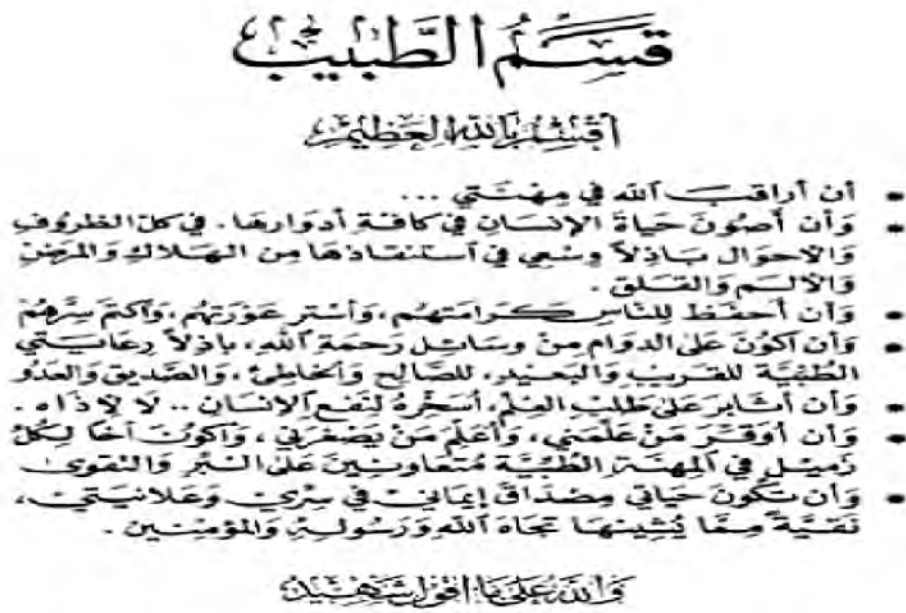 قَسَمُ الطَّبِيب
أُقْسِمُ بِاللهِ العَظِيمِ
• أن أراقب الله في مِهْنَتي ...
• وَأن أصُونَ حَيَاةَ الإنسَانِ في كافّة أدوَارهَا. في كلّ الظروُفِ
وَالأحوَال بَاذِلاً وسْعِي في استنقاذهَا مِن الهَلاكِ وَالمرَضِ
وَالألَم وَالقَلَق.
• وَأن أحفَظ لِلنّاسِ كَرَامَتهُم، وَأسْتر عَوْرَتهُم، وَأكتمَ سِرَّهُمْ
• وَأن أكوُنَ عَلى الدوَام مِنْ وسَائِل رَحمَة اللهِ، باذِلاً رِعَايَتي
الطّبّيَّة للقَريبِ وَالبَعيدِ، للصَالِح وَالخاطِئ، وَالصّديق وَالعَدُو
• وَأن أثابِرَ عَلى طَلبِ العِلْمِ، أسَخّرهُ لِنَفعِ الإنسَانِ .. لا لأذَاه.
• وَأن أوَقّرَ مَنْ عَلّمَني، وَأعَلّمَ مَنْ يَصْغَرَني، وَأكوُنَ أخاً لِكُلّ
زَمِيلٍ في المِهنَةِ الطّبّيَّة مُتَعَاونِينَ عَلى البِرّ وَالتقوى
• وَأن تكُونَ حَيَاتي مِصْدَاقَ إيمَاني في سِرّي وَعَلانيَتي،
نَقيَّةً مِمَّا يُشِينهَا تجَاهَ اللهِ وَرَسُولِهِ وَالمؤمِنِين.
وَاللهُ عَلى مَا أقولُ شَهِيدٌ